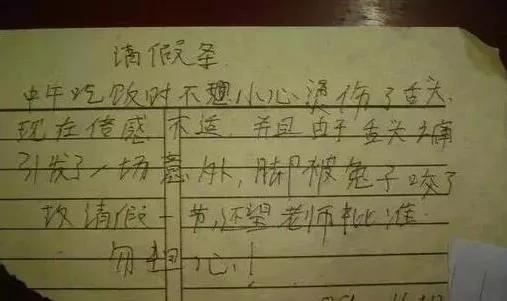 请假条
中午吃饭时不小心烫伤了舌头,
现在倍感不适,并且由于舌头痛
引发了一场意外,脚被兔子咬了
故请假一节,还望老师批准.
勿担心!